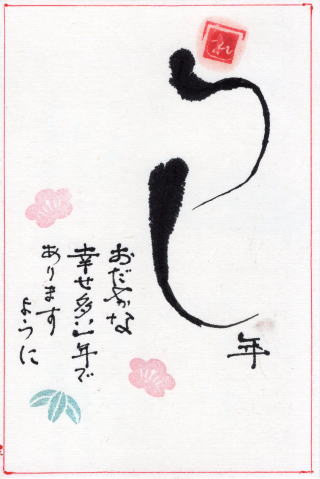 巳
年
おだやかな
幸せ多い一年で
あります
ように